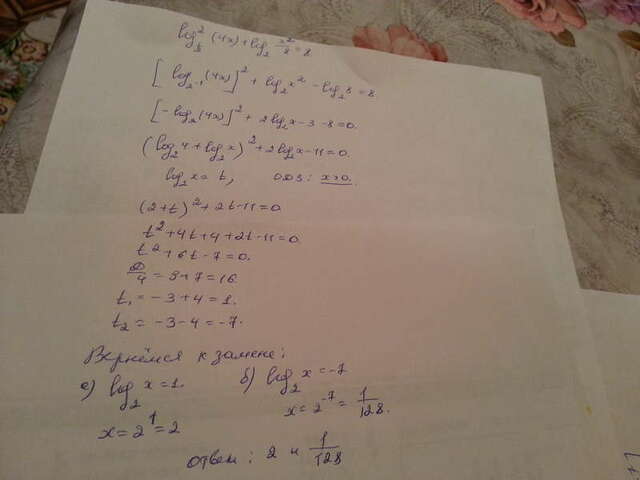 log²_{1/2} (4x) + log₂ x²/8 = 8
[log_{2⁻¹} (4x)]² + log₂x² - log₂8 = 8.
[-log₂(4x)]² + 2log₂x - 3 - 8 = 0.
(log₂4 + log₂x)² + 2log₂x - 11 = 0.
log₂x = t, ОДЗ: x>0.
(2+t)² + 2t - 11 = 0
t² + 4t + 4 + 2t - 11 = 0.
t² + 6t - 7 = 0.
D/4 = 9 + 7 = 16.
t₁ = -3 + 4 = 1.
t₂ = -3 - 4 = -7.
Вернёмся к замене:
а) log₂ x = 1. б) log₂ x = -7
x = 2¹ = 2 x = 2⁻⁷ = 1/128.
ответ: 2 и 1/128